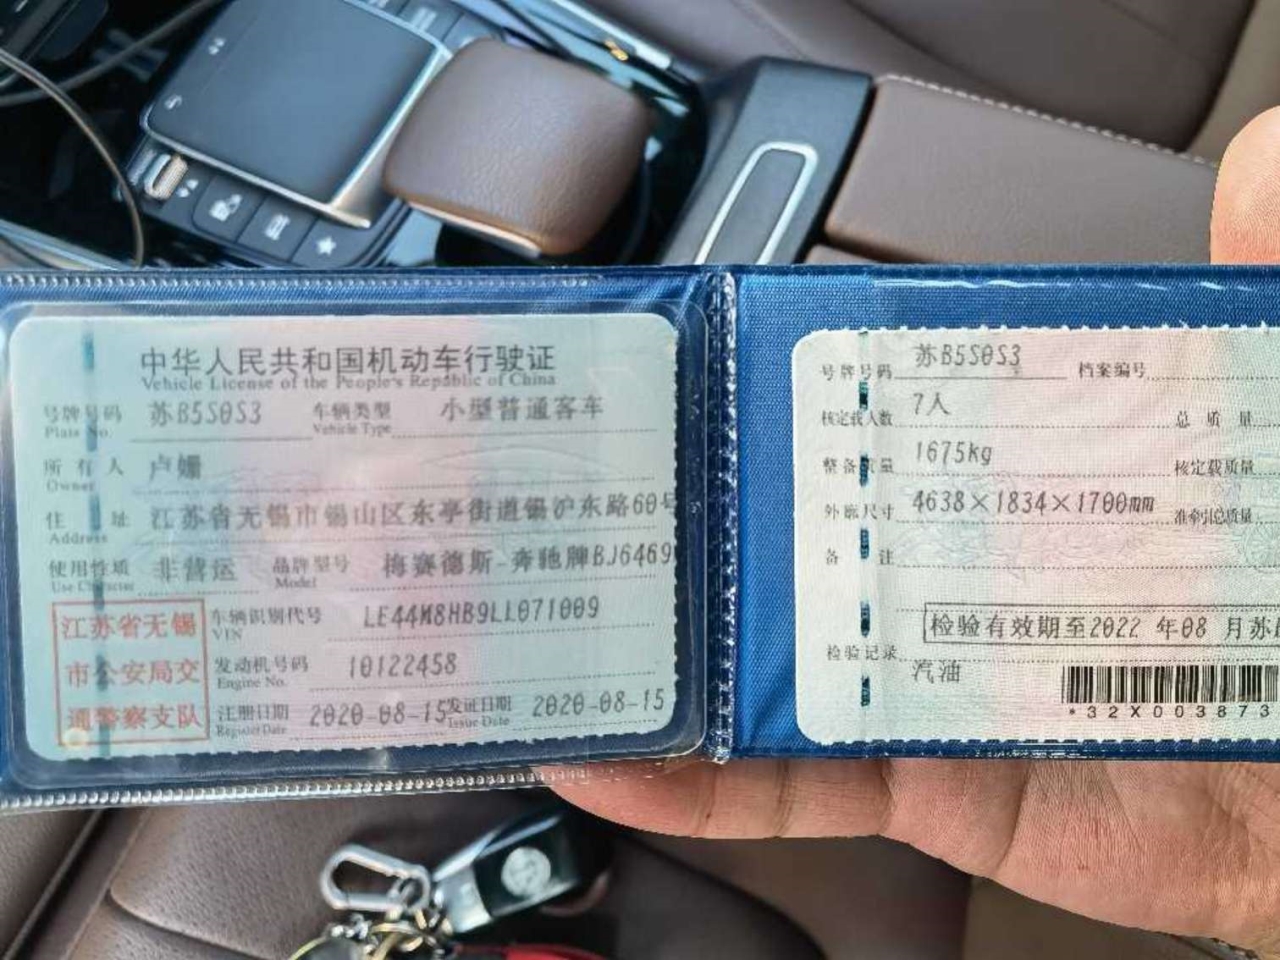 中华人民共和国机动车行驶证
Vehicle License of the People's Republic of China
号牌号码 苏B5S0S3 车辆类型 小型普通客车
Plate No. Vehicle Type
所有人 卢姗
Owner
住址 江苏省无锡市锡山区东亭街道锡沪东路60号
Address
使用性质 非营运 品牌型号 梅赛德斯-奔驰牌BJ6469
Use Character Model
江苏省无锡
市公安局交
通警察支队
车辆识别代号 LE44M8HB9LL071009
VIN
发动机号码 10122458
Engine No.
注册日期 2020-08-15 发证日期 2020-08-15
Register Date Issue Date
号牌号码 苏B5S0S3 档案编号
核定载人数 7人 总质量
整备质量 1675kg 核定载质量
外廓尺寸 4638×1834×1700mm 准牵引总质量
备注
检验有效期至2022 年08 月苏
检验记录
汽油
*32X003873